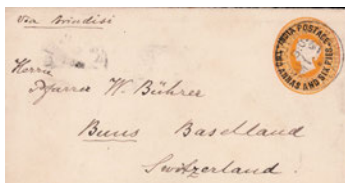 Via Brindisi
INDIA POSTAGE
TWO ANNAS AND SIX PIES
Herrn
Pfarrer W. Bührer
Buus Baselland
Switzerland.